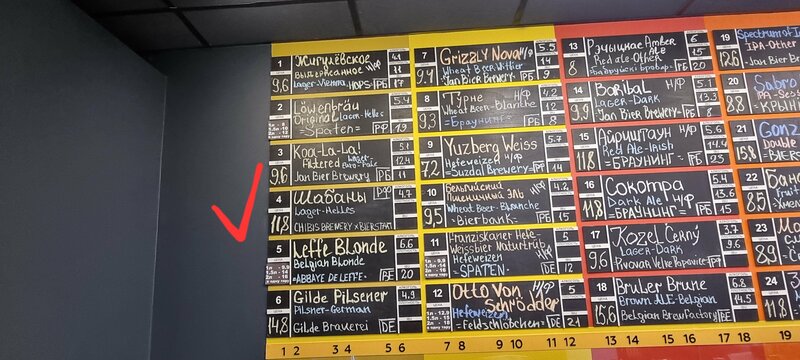 1
Жигулёвское
Выдержанное Н/Ф
Lager-Vienna HOPS
9,6
4.1
11
17
2
Löwenbräu
Original Lager-Helles
=Spaten=
РР
5.4
19
3
Koa-La-La!
Filtered
Jan Bier Brewery
РБ
9,6
5.1
12.4
11
4
Шабаны
Lager-Helles
CHIBIS BREWERY x BIERSTADT
11,8
4.7
5
Leffe Blonde
Belgian Blonde
=ABBAYE DE LEFFE=
BE
6.6
20
6
Gilde Pilsener
Pilsner-German
Gilde Brauerei
DE
14,8
4.9
7
Grizzly Nova Н/Ф
Wheat Beer-Witbier
Jan Bier Brewery
РБ
9,4
5.5
14
9
8
Турне Н/Ф
Wheat Beer-Blanche
=Браунинг=
РБ
9,3
4.2
12
8
9
Yuzberg Weiss
Hefeweizen Н/Ф
=Suzdal Brewery=
РР
7,2
5.7
14
10
Бельгийский
Пшеничный Эль Н/Ф
Wheat Beer-Blanche
=Bierbank=
РБ
9,5
4.2
15
11
Franziskaner Hefe-
Weissbier Naturtrüb
Hefeweizen
=SPATEN=
DE
12
12
Otto Von
Schrödder
Hefeweizen
=Feldschlößchen=
DE
21
13
Рэчыцкае Amber
Ale
Red ale-Other
РБ
8
6
15
20
14
Boribal Н/Ф
Lager-Dark
Jan Bier Brewery
РБ
9,9
5.4
13.3
8
15
Айриштаун Н/Ф
Red Ale-Irish
=БРАУНИНГ=
РБ
11,8
5.6
14.4
23
16
Сокотра
Dark Ale
=БРАУНИНГ=
РБ
11,8
5.4
13.6
15
17
Kozel Černý
Lager-Dark
Pivovar Velke Popovice
9,6
3.7
9.6
18
Bruler Brune
Brown ALE-Belgian
Belgian BrewFactory
DE
15,6
6.8
14.5
19
Spectrum of
IPA-Other
12,6
20
Sabro
IPA-Sess
=КРЫН
8,8
21
Gonz
Double
=BIERS
15,8
22
Ба
Фрукт
ХМ
8,5
23
М
12,8
24
11,8
1 2 3 4 5 6 7 8 9 10 11 12 13 14 15 16 17 18 19